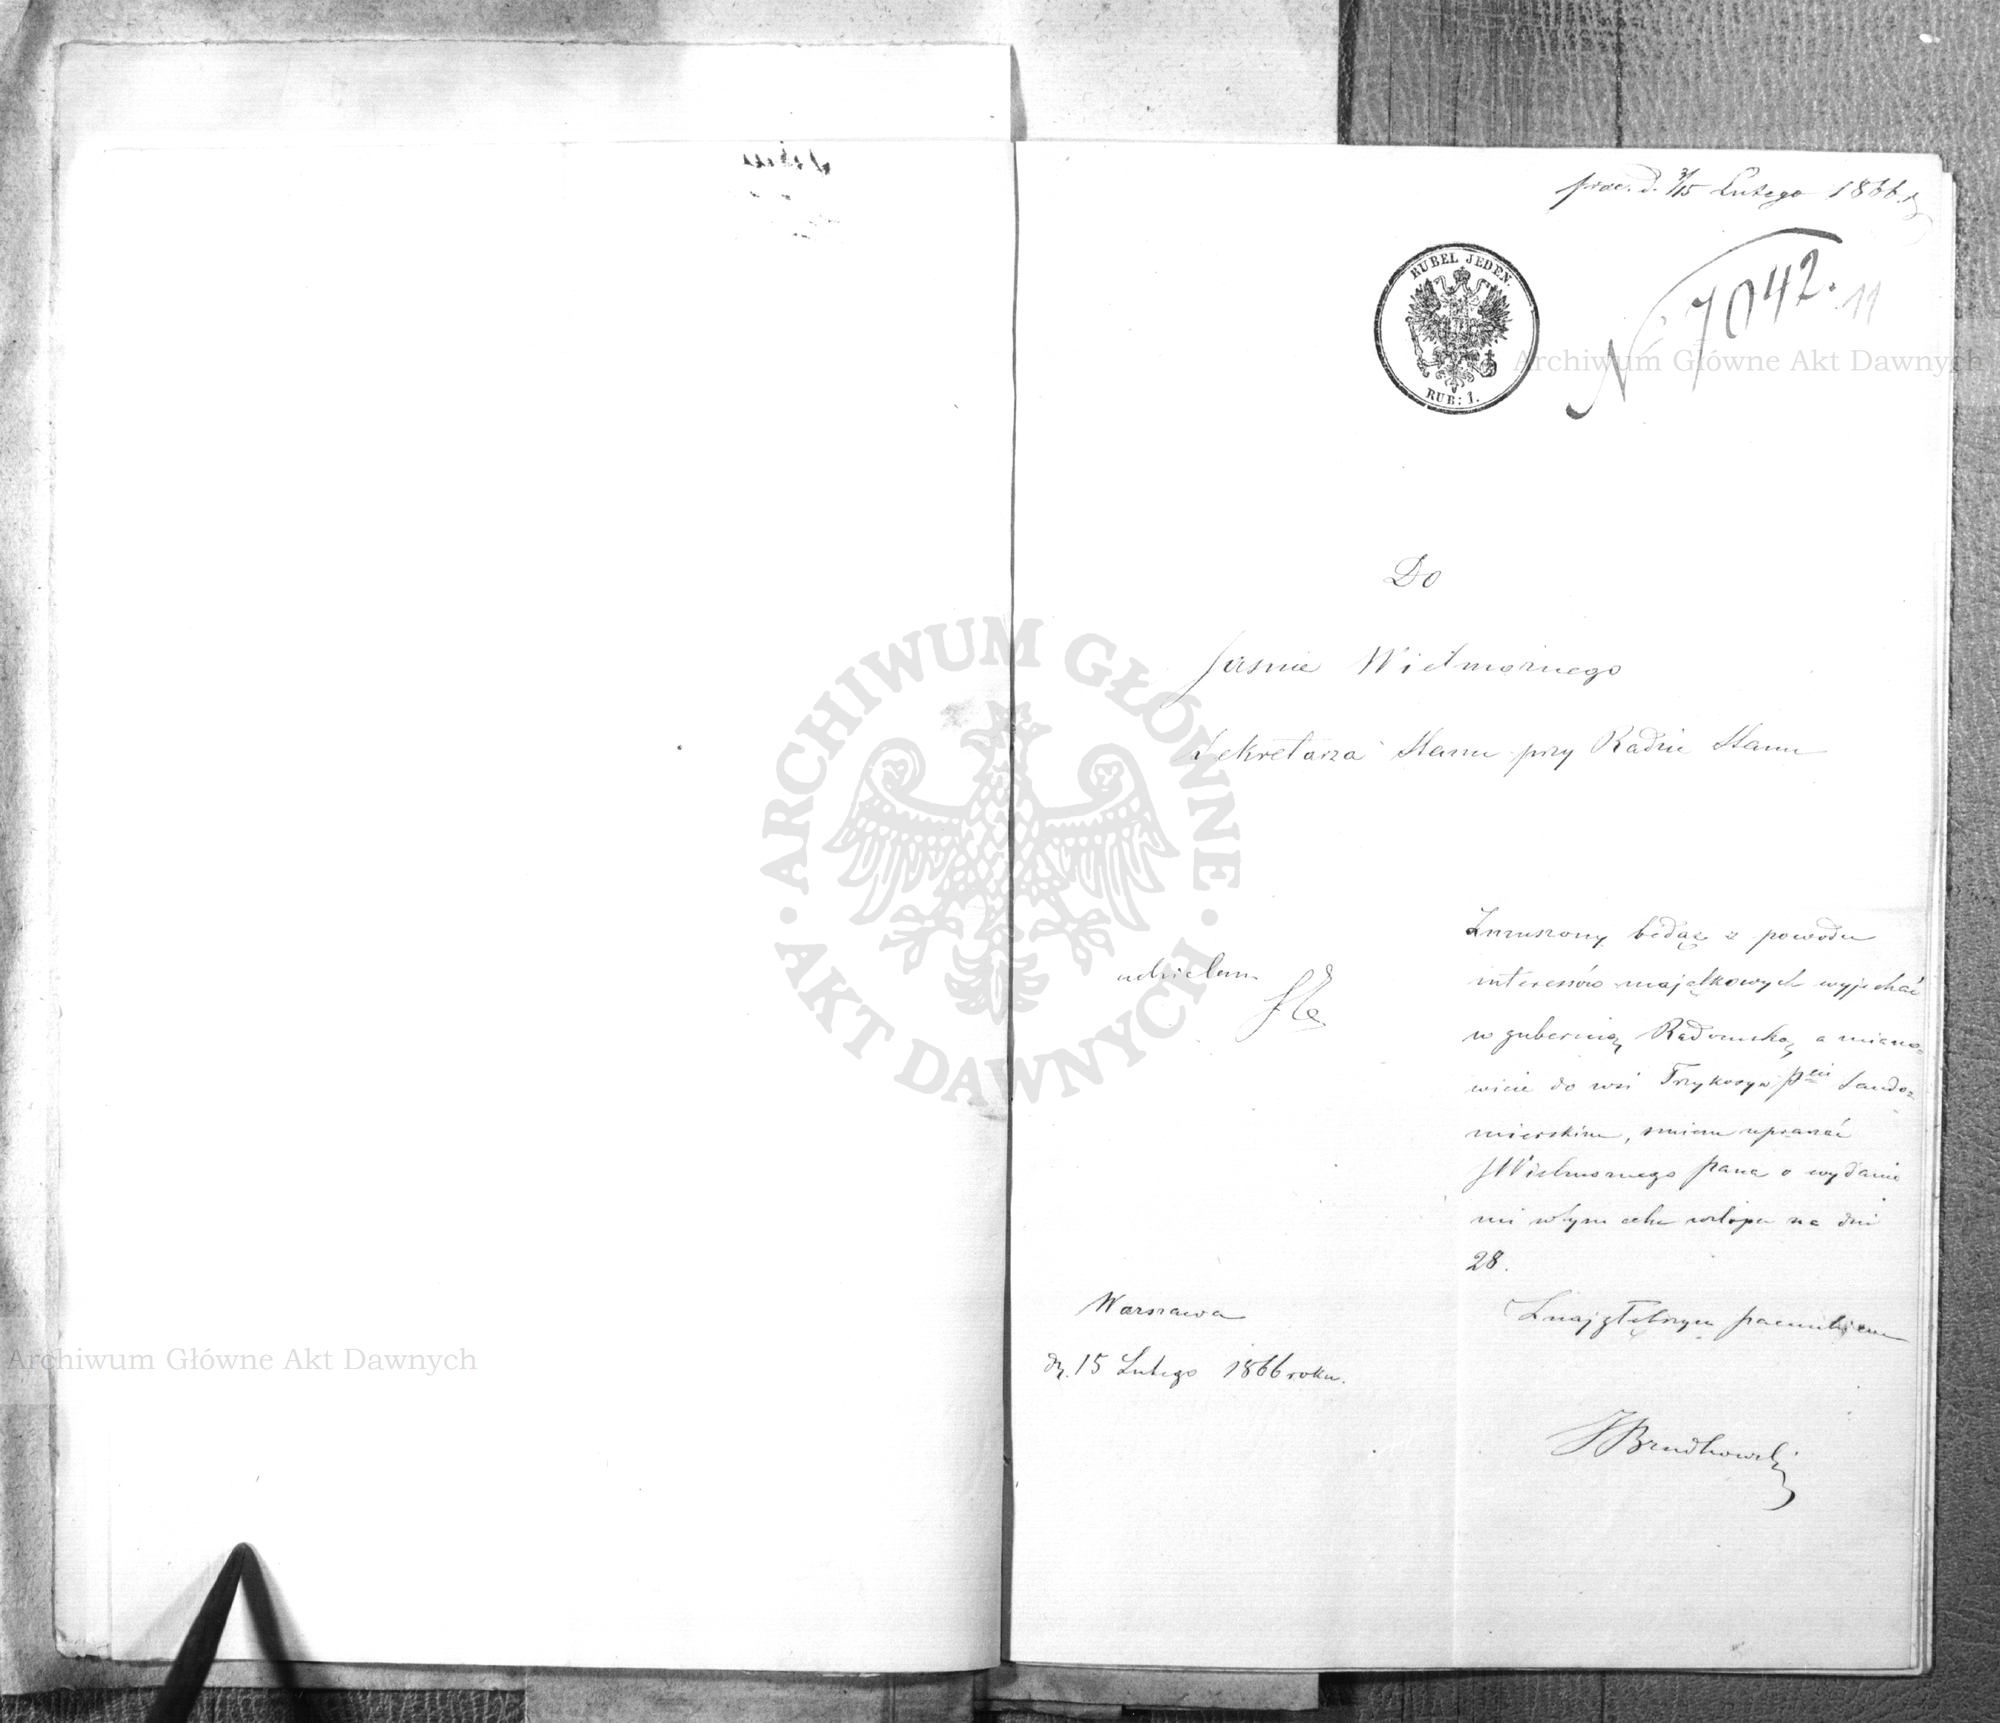 prae. d. 3/15 Lutego 1866 r.
RUBEL JEDEN.
RUB: 1.
N 7042. 11
Archiwum Główne Akt Dawnych
Do
Jaśnie Wielmożnego
Sekretarza Stanu przy Radzie Stanu
ARCHIWUM GŁÓWNE AKT DAWNYCH
Zmuszony będąc z powodu
interessów majątkowych wyjechać
w gubernią Radomską a miano-
wicie do wsi Trzykosy w Pcie Sando-
mierskim, śmiem upraszać
JWielmożnego Pana o wydanie
mi w tym celu urlopu na dni
28.
udzielam
Z najgłębszym szacunkiem
Warszawa
d. 15 Lutego 1866 roku.
Archiwum Główne Akt Dawnych